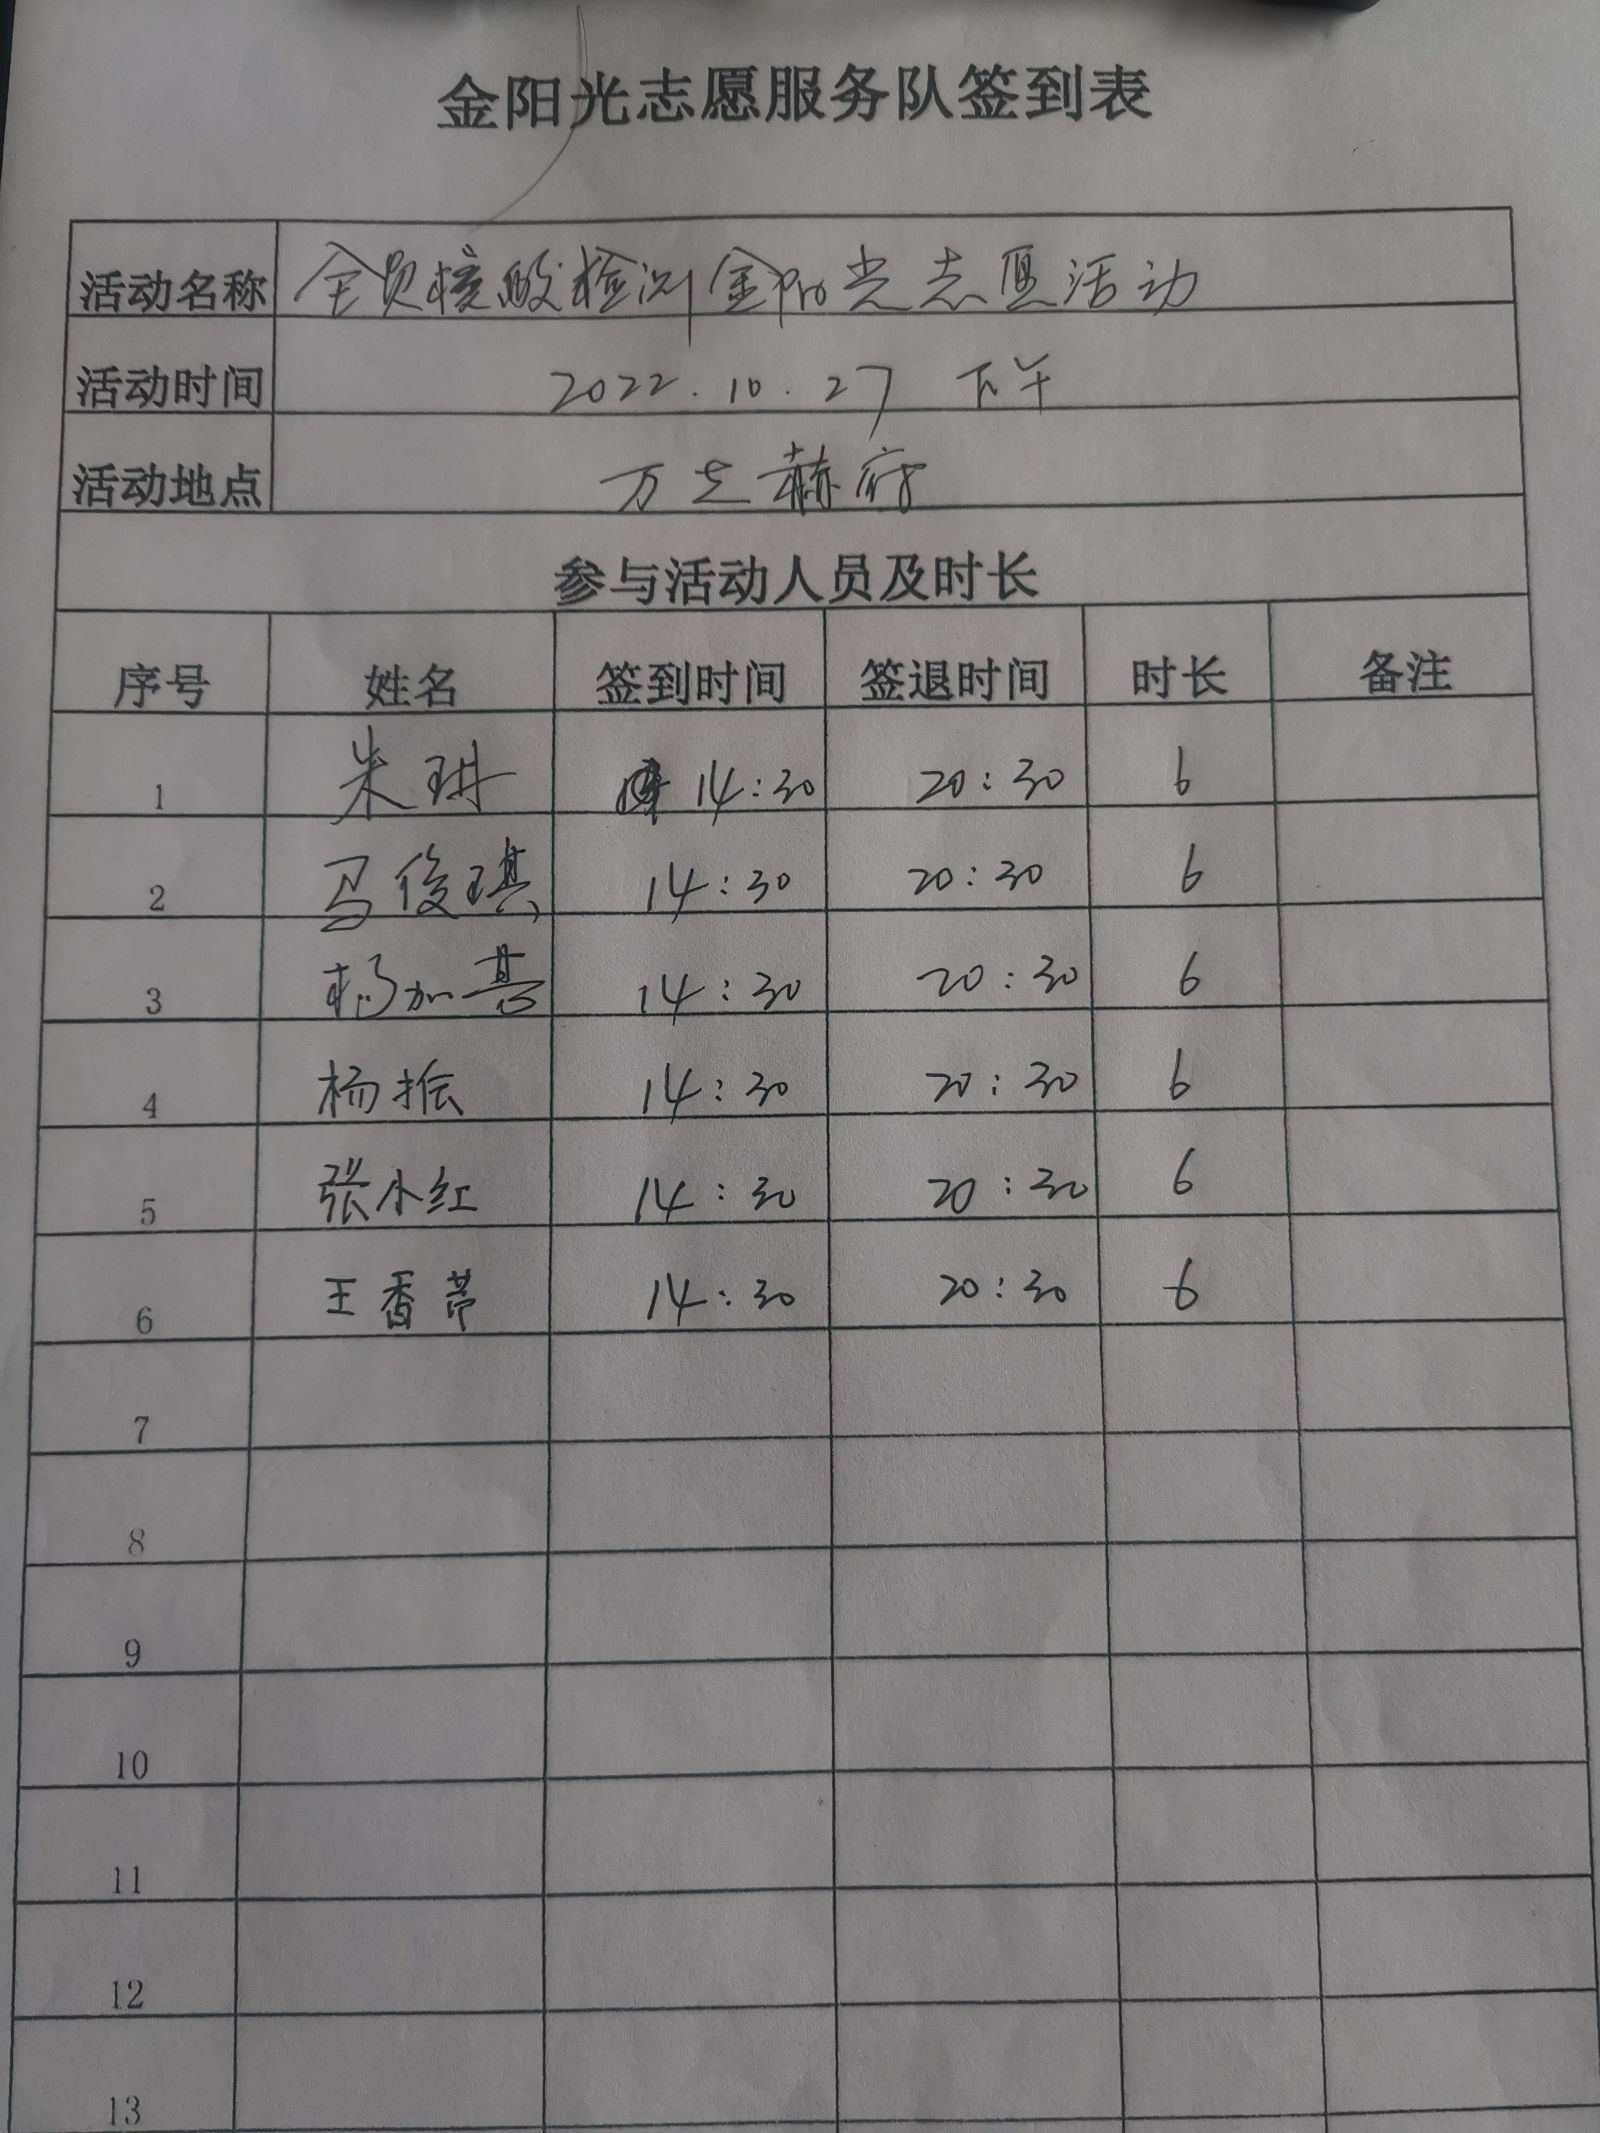 金阳光志愿服务队签到表
活动名称 全员核酸检测金阳光志愿活动
活动时间 2022.10.27 下午
活动地点 万芝赫府
参与活动人员及时长
序号 姓名 签到时间 签退时间 时长 备注
1 朱琪 14:30 20:30 6
2 马俊琪 14:30 20:30 6
3 杨加喜 14:30 20:30 6
4 杨振 14:30 20:30 6
5 张小红 14:30 20:30 6
6 王香芾 14:30 20:30 6
7
8
9
10
11
12
13